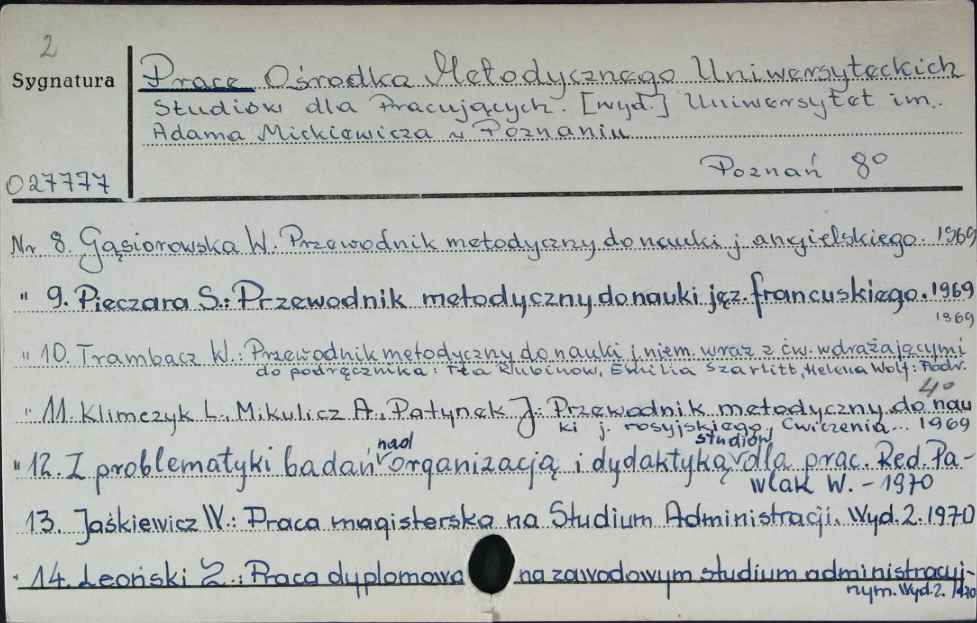 2
Sygnatura
027777
Prace Ośrodka Metodycznego Uniwersyteckich
Studiów dla Pracujących. [wyd.] Uniwersytet im.
Adama Mickiewicza w Poznaniu
Poznań 8°
Nr 8. Gąsiorowska W. Przewodnik metodyczny do nauki j. angielskiego. 1969
" 9. Pieczara S.: Przewodnik metodyczny do nauki jęz. francuskiego. 1969
1969
" 10. Trambacz W.: Przewodnik metodyczny do nauki j. niem. wraz z ćw. wdrażającymi
do podręcznika: Ita Rubinow, Emilia Szarlitt, Helena Wolf: Podr.
4°
" 11. Klimczyk L., Mikulicz A., Patynek J: Przewodnik metodyczny do nau
ki j. rosyjskiego, Ćwiczenia... 1969
" 12. Z problematyki badań nad organizacją i dydaktyką studiów dla prac. Red. Pa-
wlak W. - 1970
13. Jaśkiewicz W.: Praca magisterska na Studium Administracji. Wyd. 2. 1970
" 14. Leoński Z.: Praca dyplomowa na zawodowym studium administracyj-
nym. Wyd. 2. 1970